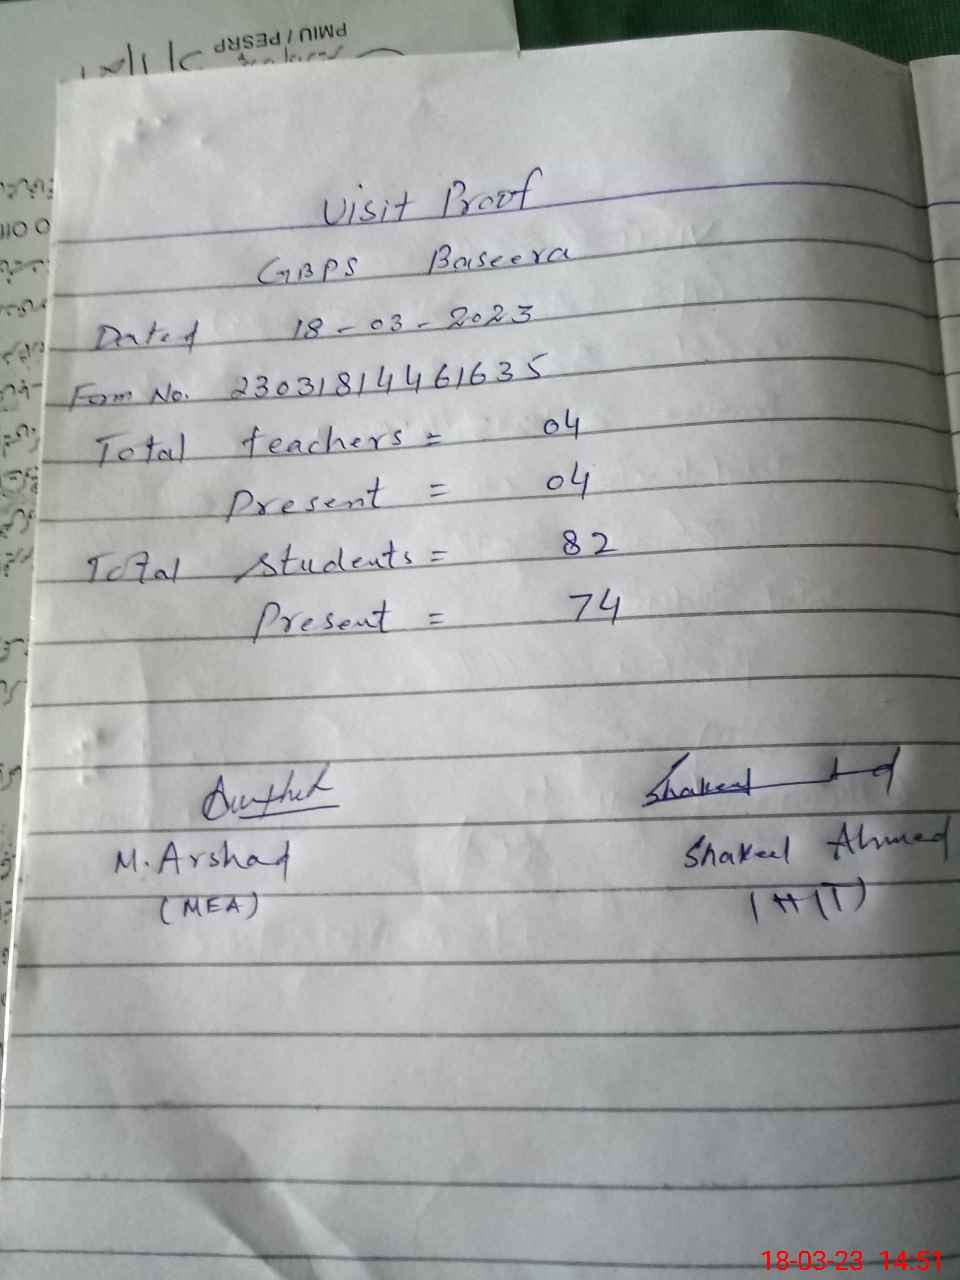 PMIU / PESRP
Visit Proof
GBPS Baseera
Dated 18-03-2023
Form No. 23031814461635
Total teachers = 04
Present = 04
Total students = 82
Present = 74
Shakeel
M. Arshad
Shakeel Ahmed
(MEA)
(HT)
18-03-23 14:51